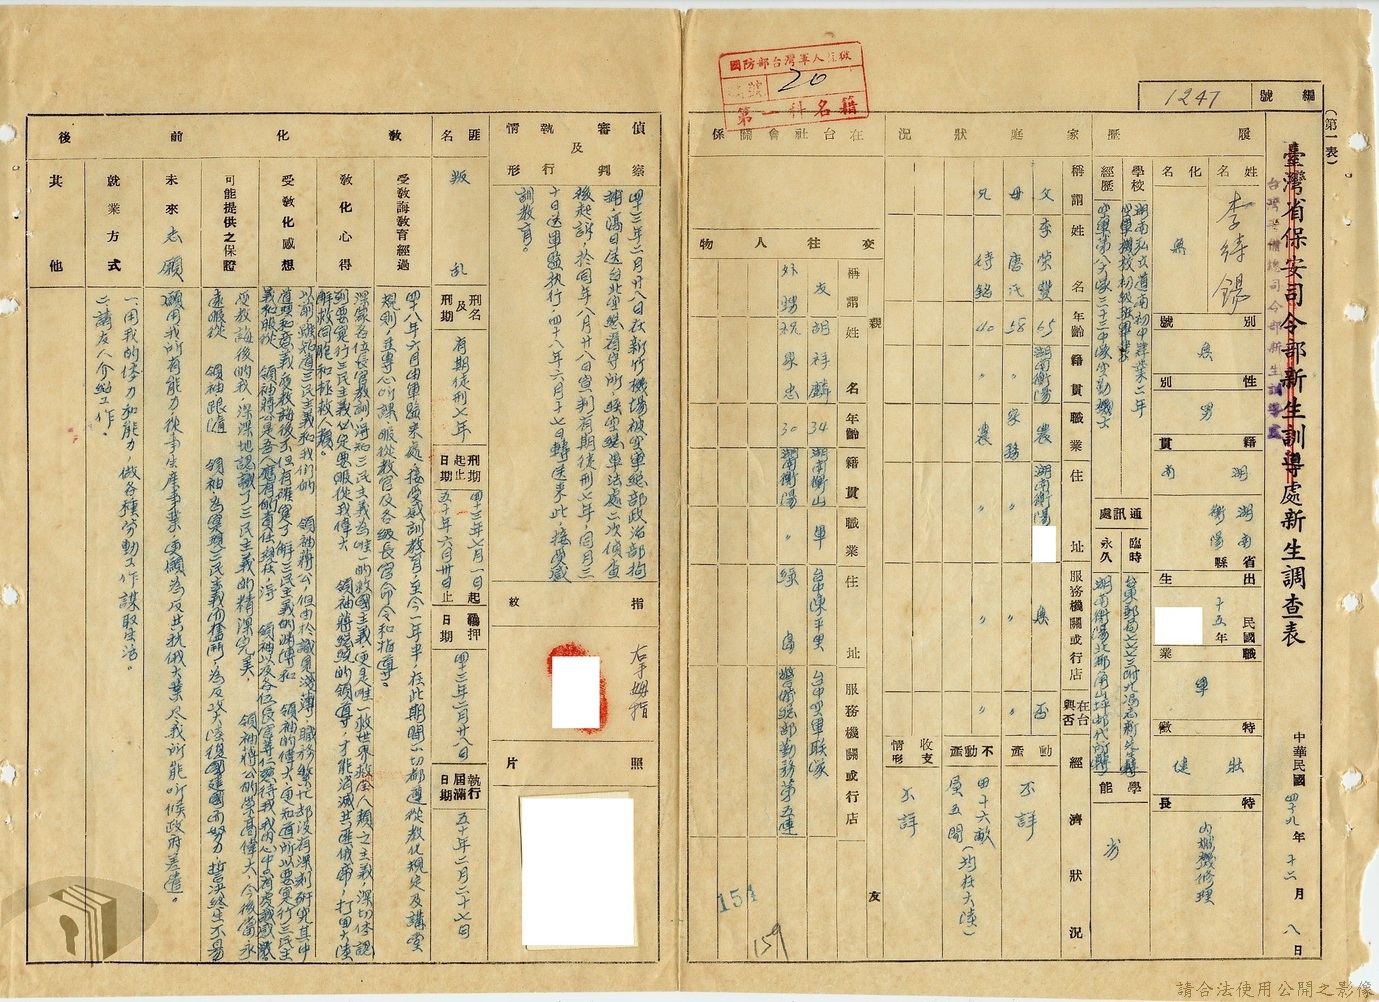 (第一表)
臺灣省保安司令部新生訓導處新生調查表
台灣警備總司令部新生訓導處
中華民國四十九年十二月八日
編號
1247
國防部台灣軍人監獄
20
第一科名籍
履歷
姓名
李綺錫
化名
無
別號
無
性別
男
籍貫
湖南
湖南省衡陽縣
出生
民國十五年
職業
軍
特徵
健壯
特長
內燃機修理
學校
湖南弘文道南初中肄業二年
空軍機校初級班畢業
經歷
空軍第八大隊三十三中隊空勤機士
通訊處
臨時
永久
學能
家庭狀況
稱謂
姓名
年齡
籍貫
職業
住址
服務機關或行店
在台與否
父
李榮豐
65
湖南衡陽
農
湖南衡陽
無
否
母
唐氏
58
〃
家務
〃
〃
〃
兄
綺銘
40
〃
農
〃
〃
〃
經濟狀況
動產
不詳
不動產
田十六畝
屋五間
(均在大陸)
收支情形
不詳
在台社會關係
交往人物
親友
稱謂
姓名
年齡
籍貫
職業
住址
服務機關或行店
友
胡祥麟
34
湖南衡山
軍
台中空軍联隊
外甥
祝良忠
30
湖南衡陽
〃
綠島
警備總部勤務第五連
154
159
偵察審判及執行情形
四十三年二月廿八日在新竹機場被空軍總部政治部拘
捕,隔日送台北空總看守所,経空總軍法處二次偵查
後起訴,於同年八月廿八日宣判有期徒刑七年,同月三
十日送軍監執行,四十八年六月十七日轉送來此,接受感
訓教育。
指紋
右手姆指
照片
匪名
叛亂
刑名及刑期
有期徒刑七年
刑期起止日期
羈押日期
四十三年二月廿八日
執行屆滿日期
五十年二月二十七日
教化前後
受教誨教育經過
四十八年六月由軍監來處接受感訓教育,至今一年半,在此期間一切都遵從教化規定及講堂
規則,並專心听課,服從教官及各級長官命令和指導。
教化心得
深蒙各位長官教訓,得知三民主義為唯一的救國主義,更是唯一救世界救全人類之主義,深切体認
到要實行三民主義,必定要服從我偉大 領袖蔣總統的領導,才能消滅共匪俄帝,打回大陸
解救同胞和拯救人類。
受教化感想
以前雖知道三民主義和我們的 領袖蔣公,但由於識見淺薄,職務繁忙,却沒有深刻研究其中
可能提供之保證
遠服從 領袖跟隨 領袖為實現三民主義而奮鬥,為反攻大陸復國建國而努力,誓決終生不易
未來志願
願用我所有能力從事生產事業,更願為反共抗俄大業盡我所能听候政府差遣。
就業方式
一、用我的体力和能力,做各種勞動工作謀取生活。
二、請友人介紹工作。
其他
請合法使用公開之影像